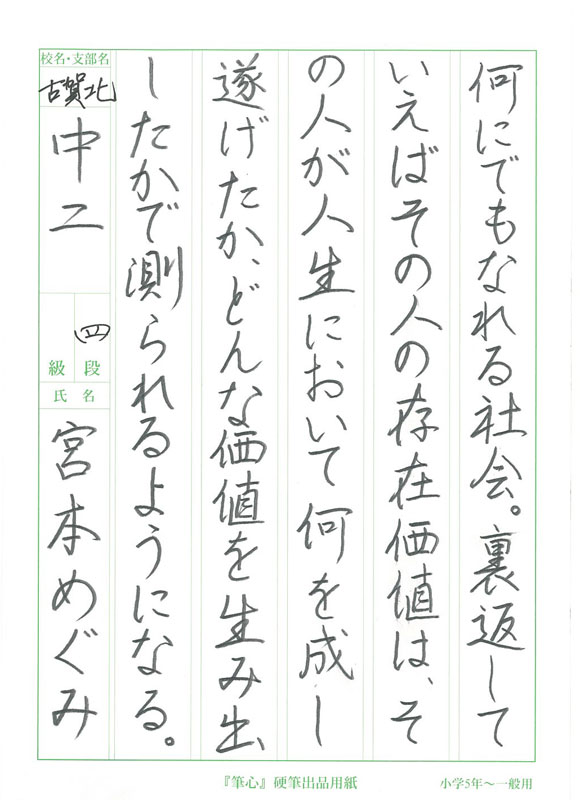 何にでもなれる社会。裏返して
いえばその人の存在価値は、そ
の人が人生において何を成し
遂げたか、どんな価値を生み出
したかで測られるようになる。
校名・支部名
古賀北
中二
四
段
級
氏名
宮本めぐみ
『筆心』硬筆出品用紙
小学5年〜一般用